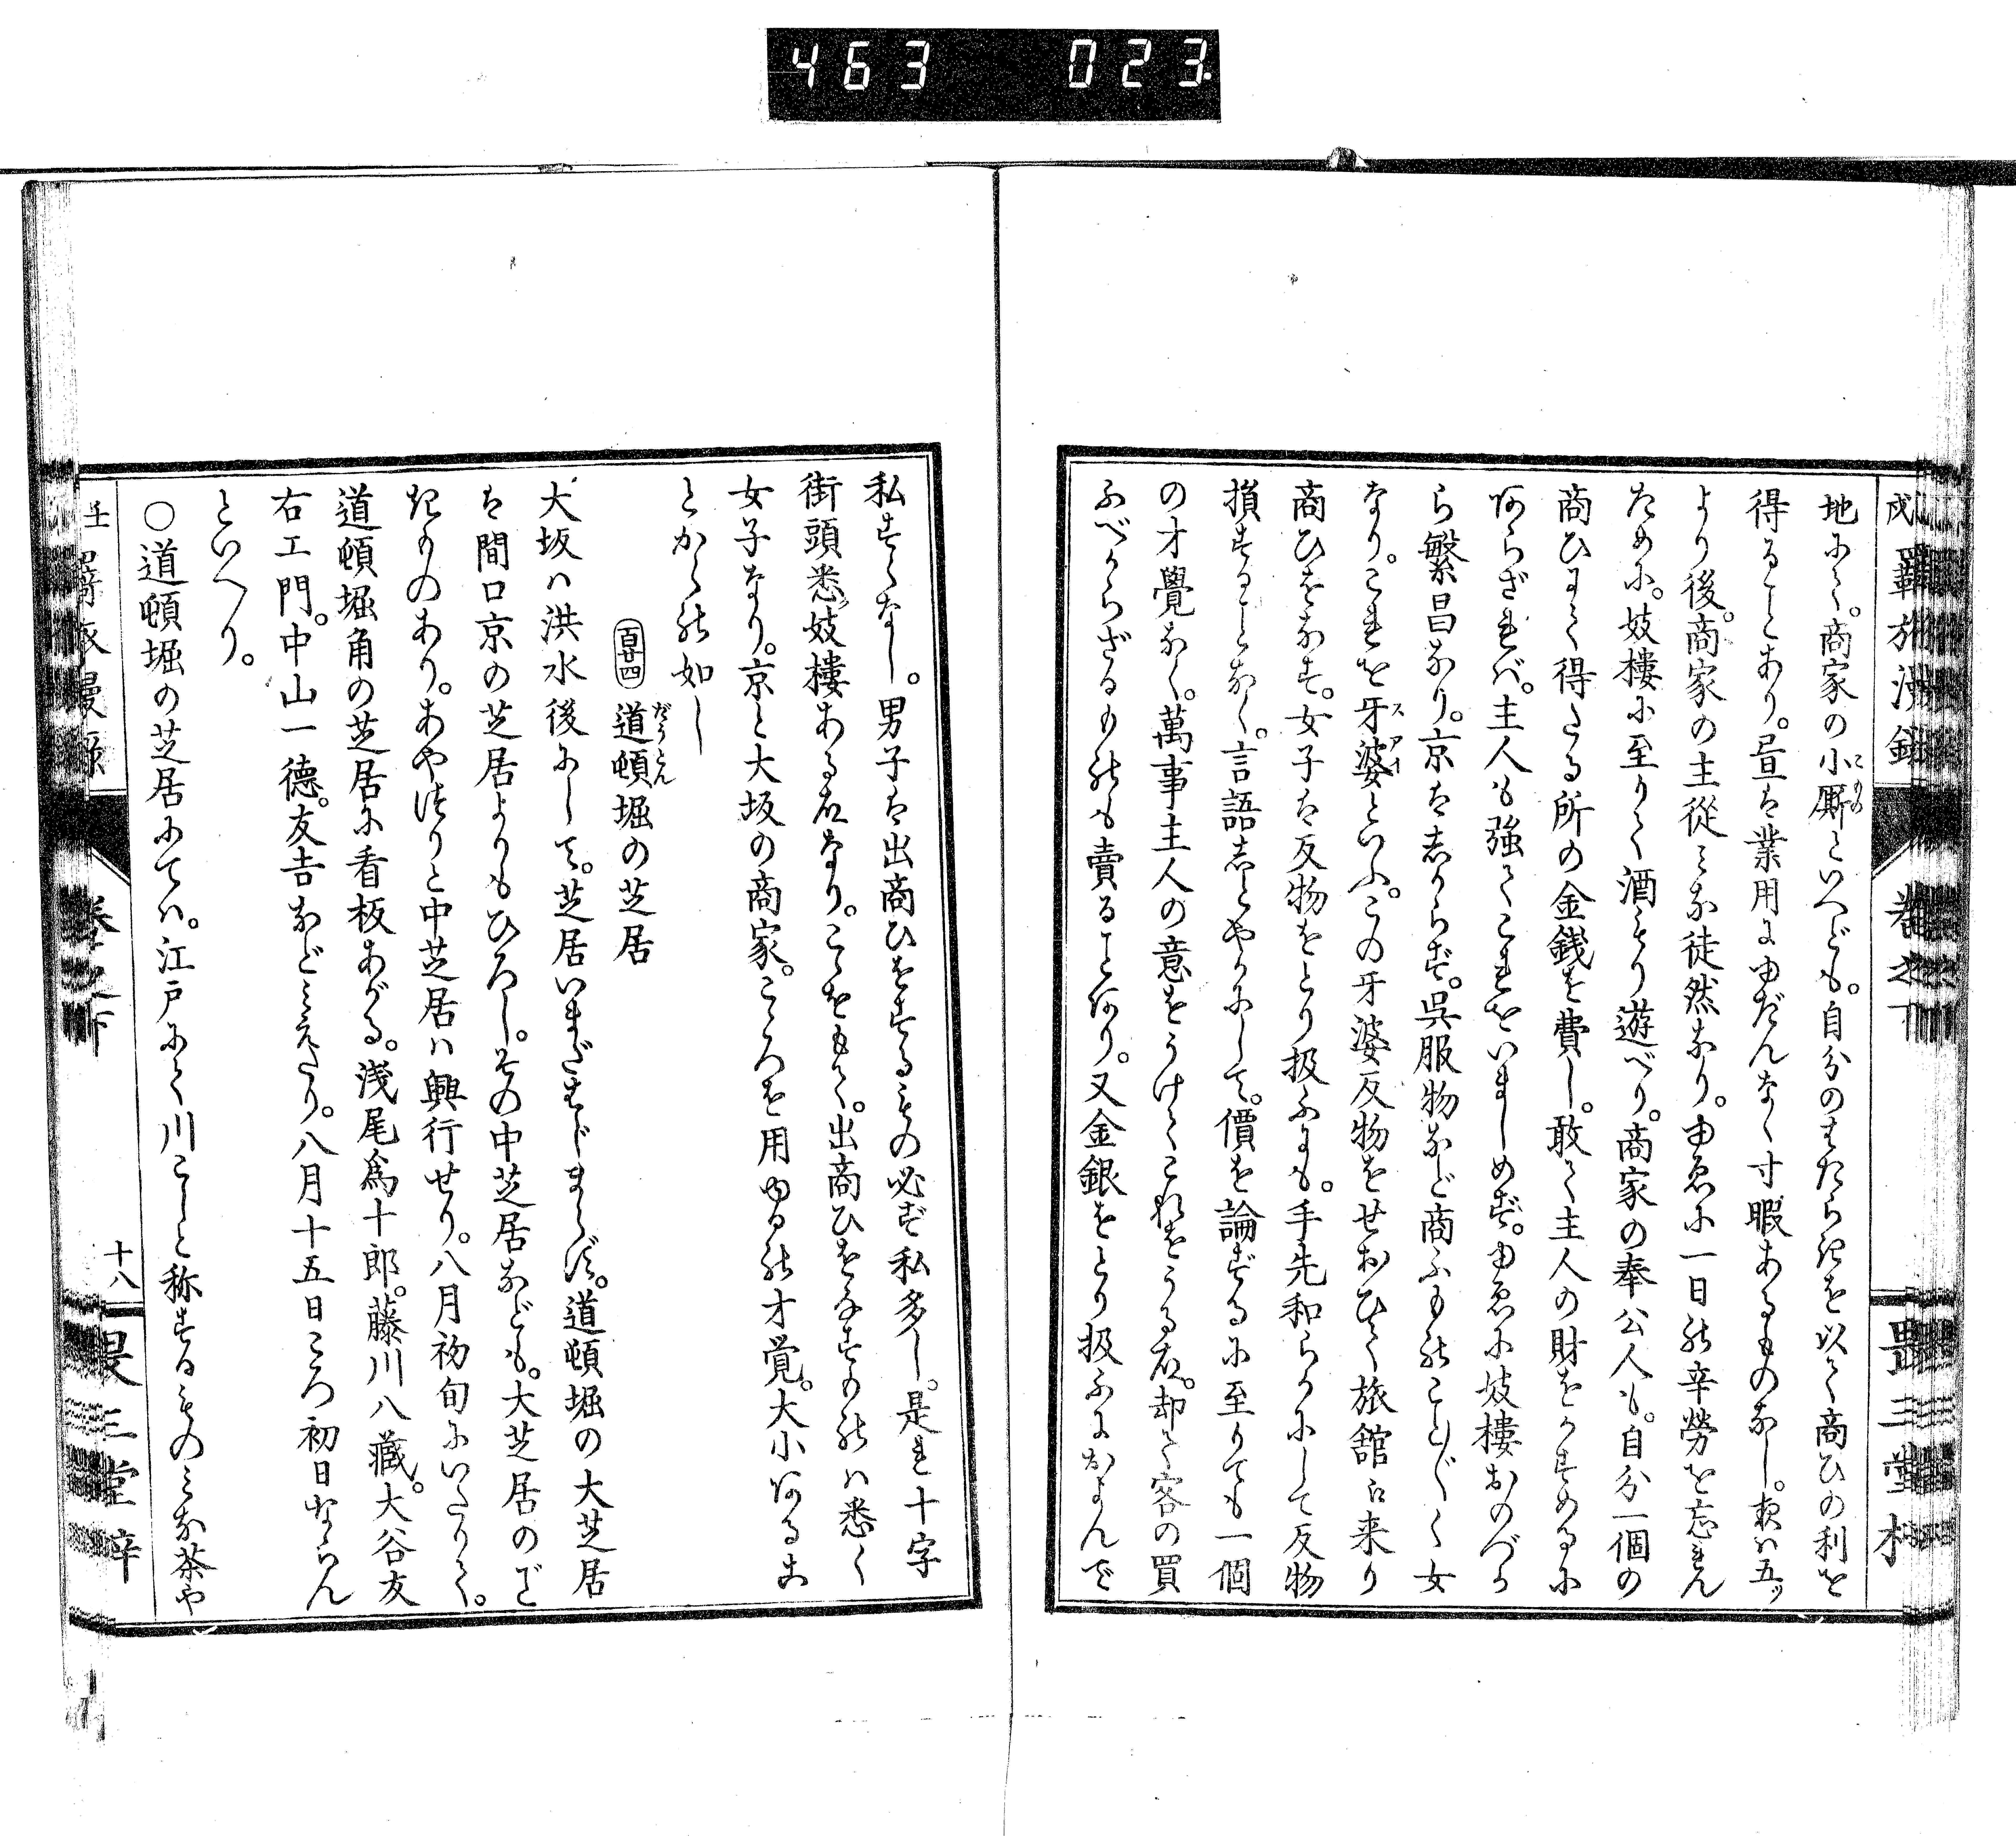 463 023
地にて。商家の小厮といへども。自分のはたらきを以て商ひの利を
得ることあり。昼は業用にゆだんなく寸暇あるものなし。夜は五ッ
より後。商家の主従みな徒然なり。ゆゑに一日の辛勞を忘れん
ために。妓樓に至りて酒もり遊べり。商家の奉公人も。自分一個の
商ひにて得たる所の金銭を費し。敢て主人の財をかすめるに
あらざれバ。主人も強てこれをいましめず。ゆゑに妓樓おのづか
ら繁昌なり。京は志からず。呉服物など商ふものこと〴〵く女
なり。これを牙婆といふ。この牙婆反物をせおひて旅舘に来り
商ひをなす。女子は反物をとり扱ふにも。手先和らかにして反物
損することなく。言語志とやかにして。價を論ずるに至りても一個
の才覺なく。萬事主人の意をうけてこれをうる故。却て客の買
ふべからざるものも賣ることあり。又金銀をとり扱ふにおよんで
私することなし。男子は出商ひをするもの必ず私多し。是れ十字
街頭悉妓樓ある故なり。こゝをもて。出商ひをなすものは悉く
女子なり。京と大坂の商家。こゝろを用ゆるの才覚。大小あるこ
とかくの如し
百廿四 道頓堀の芝居
大坂ハ洪水後にして。芝居いまだはじまらず。道頓堀の大芝居
は間口京の芝居よりもひろし。その中芝居なども。大芝居のご
きものあり。あや津りと中芝居ハ興行せり。八月初旬にいたりて。
道頓堀角の芝居に看板あがる。浅尾為十郎。藤川八藏。大谷友
右エ門。中山一徳。友吉などみえたり。八月十五日ころ初日ならん
といへり。
〇道頓堀の芝居にてハ。江戸にて川こしと称するものみな茶や
十八